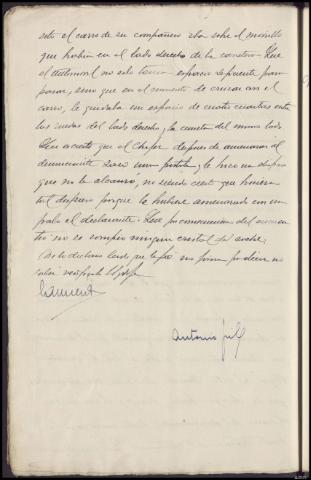 esto el carro de su compañero iba sobre el morrillo
que había en el lado derecho de la carretera. Que
el automovil no solo tenia espacio suficiente para
pasar, sino que en el momento de cruzar con el
carro, le quedaba un espacio de cuatro cuartas entre
las ruedas del lado derecho y la cuneta del mismo lado
Que es cierto que el Chofer despues de amenazar al
denunciante sacó una pistola y le hizo un disparo
que no le alcanzó, no siendo cierto que hiciera
tal disparo porque le hubiese amenazado con un
palo el declarante. Que por consecuencia del
no se rompió ningun cristal del coche.
Asi lo declara leido que le fué no firma por decir no
saber
Antonio Gil